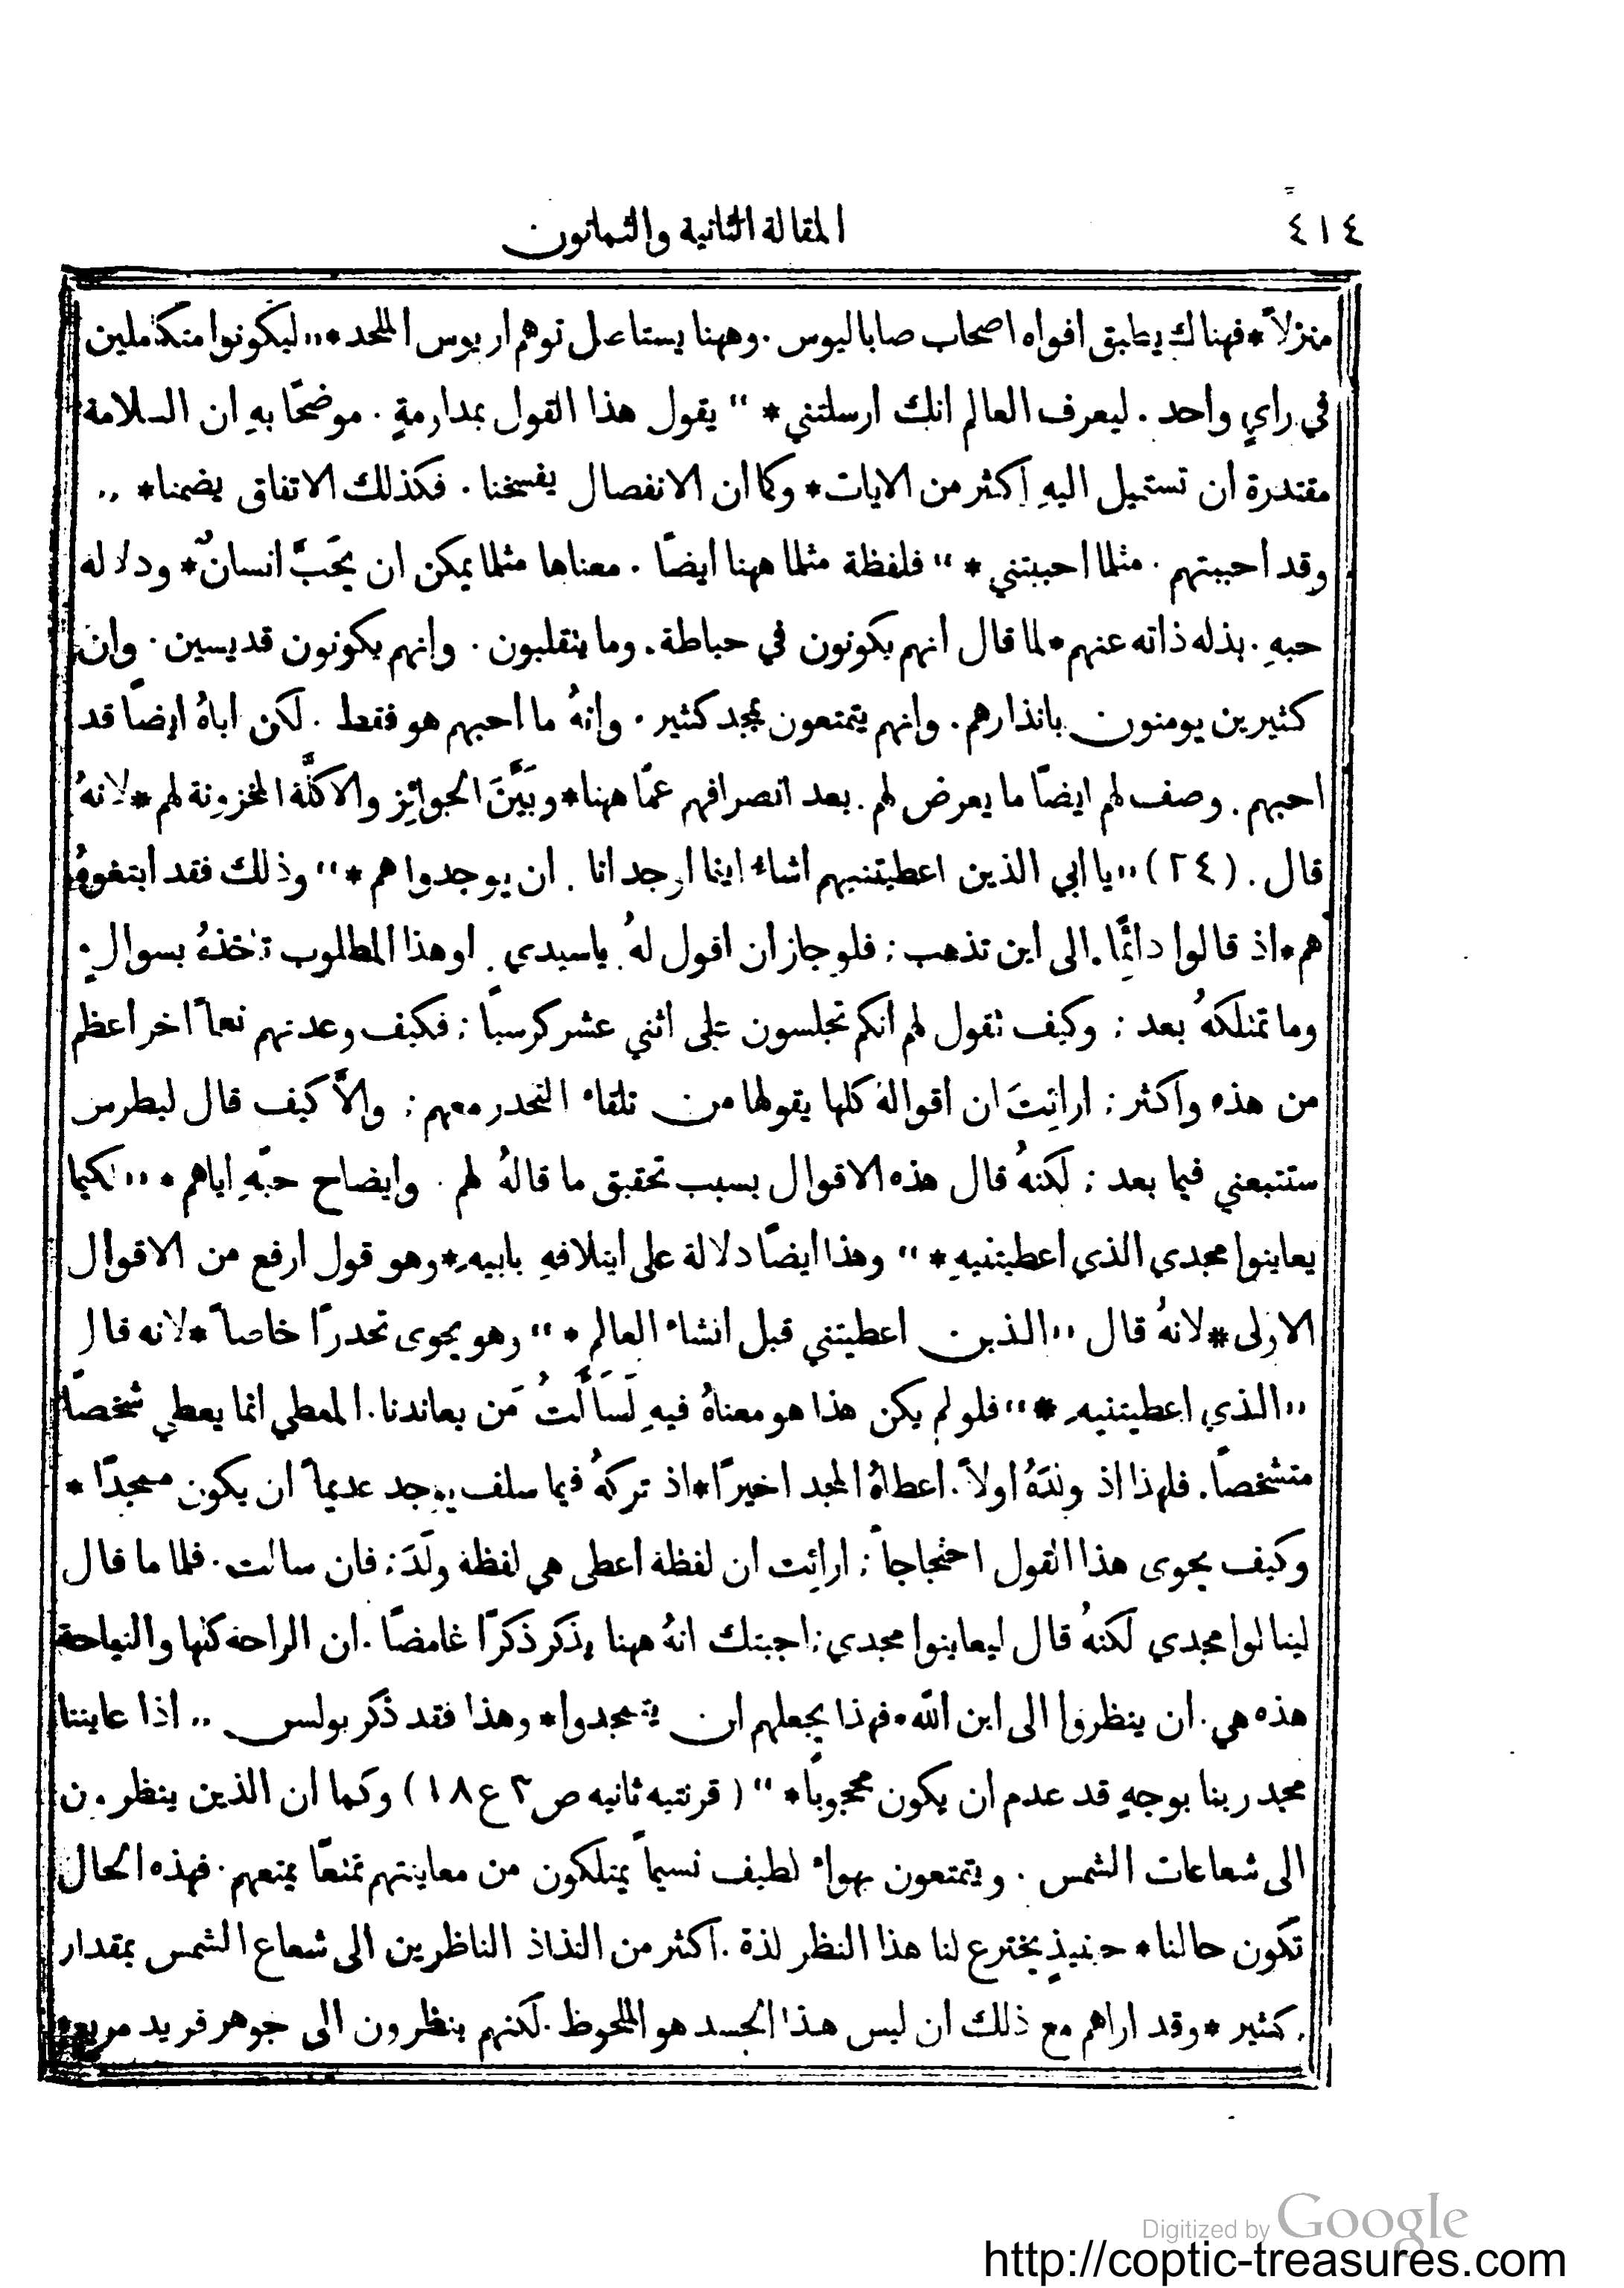 ٤١٤ المقالة الثانية والثمانون
منزلاً * فهناك يطبق افواه اصحاب صاباليوس . وههنا يستاصل توهم اريوس الملحد * ,, ليكونوا متكاملين
في رايٍ واحد . ليعرف العالم انك ارسلتني * ,, يقول هذا القول بمداومةٍ . موضحًا بهِ ان السلامة
مقتدرة ان تستميل اليهِ اكثر من الايات * وكما ان الانفصال يفسخنا . فكذلك الاتفاق يضمنا * ,,
وقد احببتهم . مثلما احببتني * ,, فلفظة مثلما ههنا ايضًا . معناها مثلما يمكن ان يُحَبَّ انسانٌ * ودلاله
حبهِ . بذله ذاته عنهم * لما قال انهم يكونون في حياطة . وما ينقلبون . وانهم يكونون قديسين . وان
كثيرين يومنون بانذارهم . وانهم يتمتعون بمجد كثير . وانهُ ما احبهم هو فقط . لكن اباهُ ايضًا قد
احبهم . وصف لهم ايضًا ما يعرض لهم . بعد انصرافهم عمَّا ههنا * وبَيَّنَ الجوائِز والاكلَّة المخزونة لهم * لانهُ
قال . (٢٤) ,, يا ابي الذين اعطيتنيهم اشاء اينما اوجد انا . ان يوجدوا هم * ,, وذلك فقد ابتغوهُ
هم * اذ قالوا دائِمًا . الى اين تذهب ; فلو جاز ان اقول لهُ . يا سيدي . اوهذا المطلوب تاخذهُ بسوالٍ .
وما تمتلكهُ بعد ; وكيف تقول لهم انكم تجلسون على اثني عشر كرسيًا ; فكيف وعدتهم نعمًا اخر اعظم
من هذه واكثر ; ارائِتَ ان اقوالهُ كلها يقولها من تلقاء التحدر معهم ; والَّا كيف قال لبطرس
ستتبعني فيما بعد ; لكنهُ قال هذه الاقوال بسبب تحقيق ما قالهُ لهم . وايضاح حبّهِ اياهم * ,, لكيما
يعاينوا مجدي الذي اعطيتنيهِ * ,, وهذا ايضًا دلالة على ايتلافهِ بابيهِ * وهو قول ارفع من الاقوال
الاولى * لانهُ قال ,, الذين اعطيتني قبل انشاء العالم * ,, وهو يحوى تحدرًا خاصاً * لانه قال
,, الذي اعطيتنيهِ * ,, فلو لم يكن هذا هو معناهُ فيهِ لَسَأَلتُ مَن يعاندنا . المعطي انما يعطي شخصًا
متشخصًا . فلهذا اذ ولدَهُ اولاً . اعطاهُ المجد اخيرًا * اذ تركهُ فيما سلف يوجد عديماً ان يكون ممجدًا *
وكيف يحوى هذا القول احتجاجاً ; ارائِت ان لفظة اعطى هي لفظة ولَدَ ; فان سالت . فلما ما قال
لينالوا مجدي لكنهُ قال ليعاينوا مجدي ; اجبتك انهُ ههنا يذكر ذكرًا غامضًا . ان الراحة كلها والنياحة
هذه هي . ان ينظروا الى ابن الله * فهذا يجعلهم ان يتمجدوا * وهذا فقد ذكر بولس ,, اذا عايننا
مجد ربنا بوجهٍ قد عدم ان يكون محجوبًا * ,, ( قرنتيه ثانيه ص ٣ ع ١٨ ) وكما ان الذين ينظرون
الى شعاعات الشمس . ويتمتعون بهواء لطيف نسيماً يمتلكون من معاينتهم تمتعًا يمتعهم . فهذه الحال
تكون حالنا * حينيذٍ يخترع لنا هذا النظر لذة . اكثر من التذاذ الناظرين الى شعاع الشمس بمقدار
كثير * وقد اراهم مع ذلك ان ليس هذا الجسد هو الملحوظ . لكنهم ينظرون الى جوهر فريد مريع *
Digitized by Google
http://coptic-treasures.com